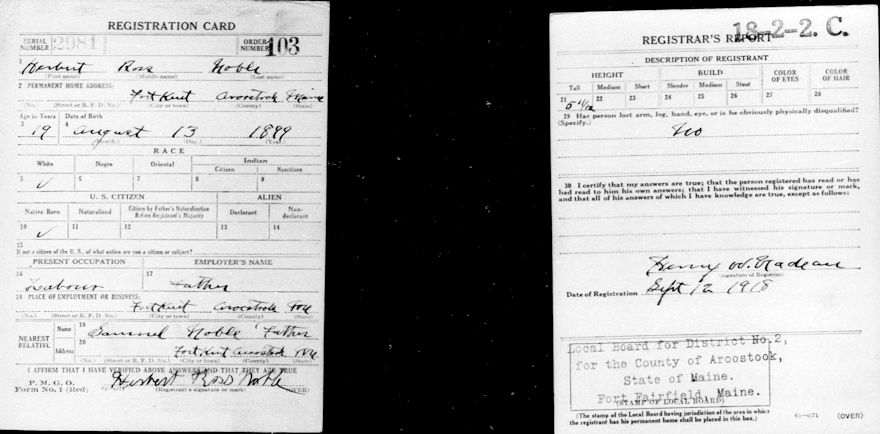 REGISTRATION CARD
SERIAL NUMBER 2981 ORDER NUMBER 103
1 Herbert Ross Noble
(First name) (Middle name) (Last name)
2 PERMANENT HOME ADDRESS:
Fort Kent Aroostook Maine
(No.) (Street or R. F. D. No.) (City or town) (County) (State)
Age in Years Date of Birth
3 19 4 August 13 1899
(Month.) (Day.) (Year.)
RACE
White Negro Oriental Indian
Citizen Noncitizen
5 ✓ 6 7 8 9
U. S. CITIZEN ALIEN
Native Born Naturalized Citizen by Father's Naturalization Before Registrant's Majority Declarant Non-declarant
10 ✓ 11 12 13 14
15
If not a citizen of the U. S., of what nation are you a citizen or subject?
PRESENT OCCUPATION EMPLOYER'S NAME
16 Labour 17 Father
18 PLACE OF EMPLOYMENT OR BUSINESS:
Fort Kent Aroostook Me
(No.) (Street or R. F. D. No.) (City or town) (County) (State)
NEAREST RELATIVE Name 19 Samuel Noble Father
Address 20 Fort Kent Aroostook Me
(No.) (Street or R. F. D. No.) (City or town) (County) (State)
I AFFIRM THAT I HAVE VERIFIED ABOVE ANSWERS AND THAT THEY ARE TRUE
P. M. G. O.
Form No. 1 (Red) Herbert Ross Noble
(Registrant's signature or mark) (OVER)
18-2-2. C.
REGISTRAR'S REPORT
DESCRIPTION OF REGISTRANT
HEIGHT BUILD COLOR OF EYES COLOR OF HAIR
Tall Medium Short Slender Medium Stout
21 22 23 24 25 26 27 28
29 Has person lost arm, leg, hand, eye, or is he obviously physically disqualified?
(Specify.) No
30 I certify that my answers are true; that the person registered has read or has
had read to him his own answers; that I have witnessed his signature or mark,
and that all of his answers of which I have knowledge are true, except as follows:
Henry W. Nadeau
(Signature of Registrar)
Date of Registration Sept 12 1918
Local Board for District No. 2,
for the County of Aroostook,
State of Maine.
Fort Fairfield, Maine.
(STAMP OF LOCAL BOARD)
(The stamp of the Local Board having jurisdiction of the area in which
the registrant has his permanent home shall be placed in this box.)
(OVER)